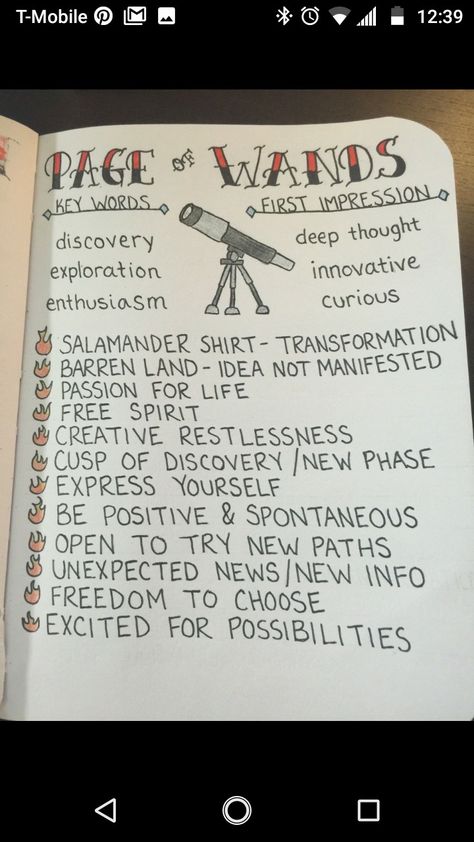 T-Mobile 12:39
PAGE OF WANDS
KEY WORDS
discovery
exploration
enthusiasm
FIRST IMPRESSION
deep thought
innovative
curious
SALAMANDER SHIRT - TRANSFORMATION
BARREN LAND - IDEA NOT MANIFESTED
PASSION FOR LIFE
FREE SPIRIT
CREATIVE RESTLESSNESS
CUSP OF DISCOVERY / NEW PHASE
EXPRESS YOURSELF
BE POSITIVE & SPONTANEOUS
OPEN TO TRY NEW PATHS
UNEXPECTED NEWS / NEW INFO
FREEDOM TO CHOOSE
EXCITED FOR POSSIBILITIES